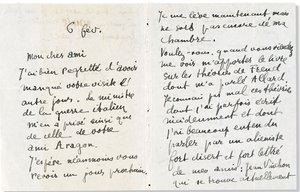 6 fév.
Mon cher ami
J'ai bien regretté d'avoir
manqué votre visite l'
autre jour. Le ministre
de la guerre italien
m'en a privé ainsi que
de celle de votre
ami Aragon.
J'espère néanmoins vous
revoir un jour prochain.
Je me lève maintenant mais
ne sors pas encore de ma
chambre.
Voulez-vous, quand vous viendrez
me voir m'apporter le livre
sur les théories de Freud
dont m'a parlé Allard.
Je connais fort mal ces théories
dont j'ai parfois écrit
et dont
j'ai beaucoup entendu
parler par un aliéniste
fort disert et fort lettré
de mes amis, Jean Vinchon
qui se trouve actuellement